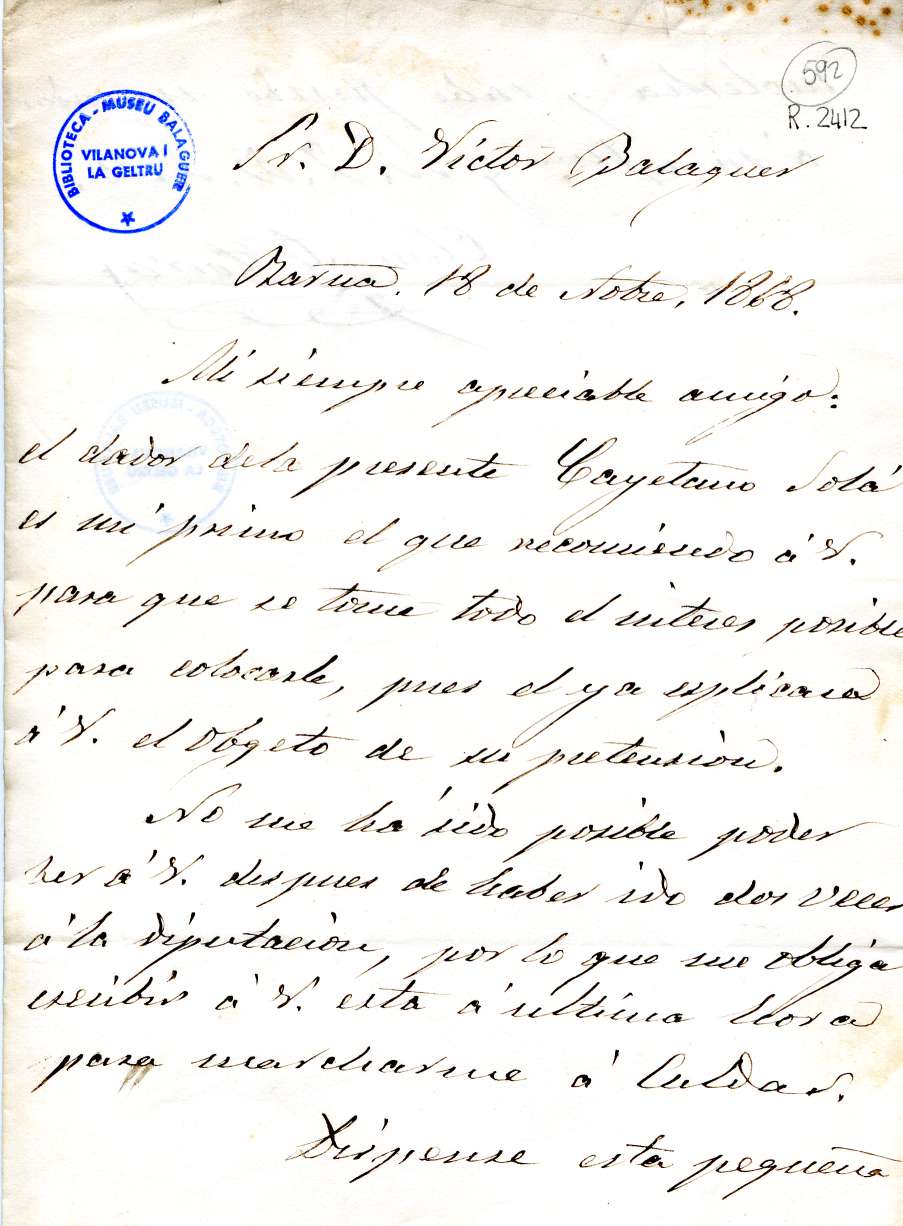 592
R. 2412
BIBLIOTECA - MUSEU BALAGUER
VILANOVA I
LA GELTRU
Sr. D. Víctor Balaguer
Barna. 18 de Nobre, 1868.
Mi siempre apreciable amigo:
el dador dela presente Cayetano Solá
es mi primo el que recomiendo á V.
para que se tome todo el interes posible
para colocarle, pues el ya esplicara
á V. el Obgeto de su pretension.
No me há sido posible poder
ver á V. despues de haber ido dos veces
á la diputacion, por lo que me obliga
escribir á V. esta á última hora
para marcharme á Caldas.
Dispense esta pequeña